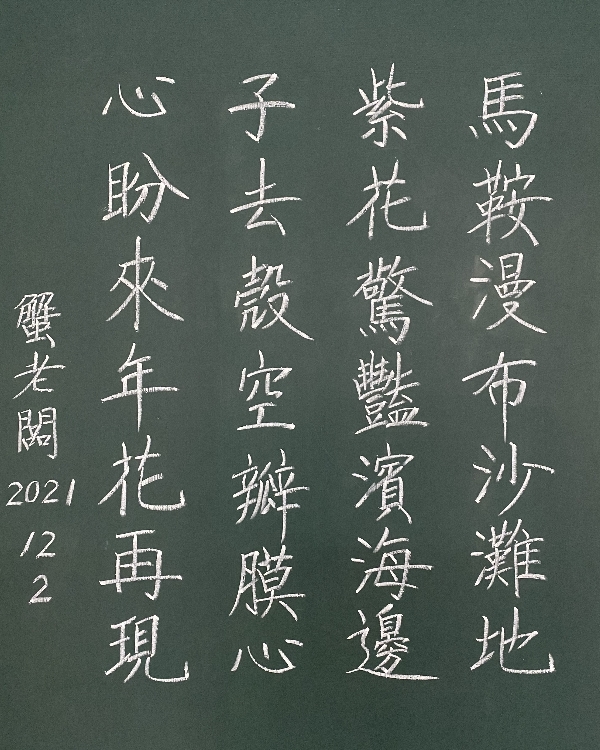 馬鞍漫布沙灘地
紫花驚艷濱海邊
子去殼空瓣膜心
心盼來年花再現
蟹老闆
2021
12
2